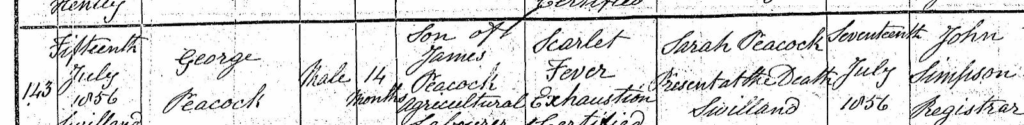 Henley
Certified
143
Fifteenth
July
1856
Swilland
George
Peacock
Male
14
Months
Son of
James
Peacock
Agricultural
Labourer
Scarlet
Fever
Exhaustion
Certified
Sarah Peacock
Present at the Death
Swilland
Seventeenth
July
1856
John
Simpson
Registrar